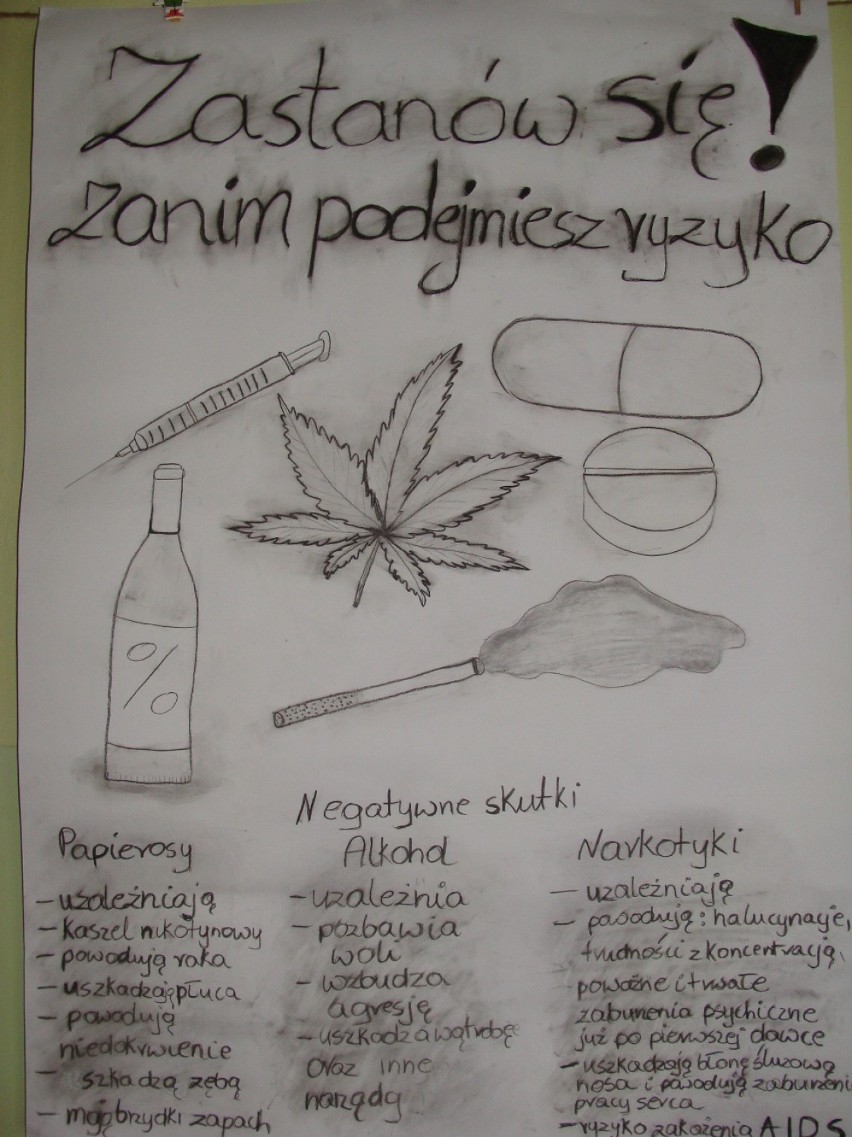 Zastanów się!
zanim podejmiesz ryzyko
%
Negatywne skutki
Papierosy
- uzależniają
- kaszel nikotynowy
- powodują raka
- uszkadzają płuca
- powodują
niedokrwienie
- szkodzą zębą
- mają brzydki zapach
Alkohol
- uzależnia
- pozbawia
woli
- wzbudza
agresję
- uszkadza wątrobę
oraz inne
narządy
Narkotyki
- uzależniają
- powodują: halucynacje,
trudności z koncentracją,
poważne i trwałe
zaburzenia psychiczne
już po pierwszej dawce
- uszkadzają błonę śluzową
nosa i powodują zaburzeni
pracy serca
- ryzyko zakażenia AIDS